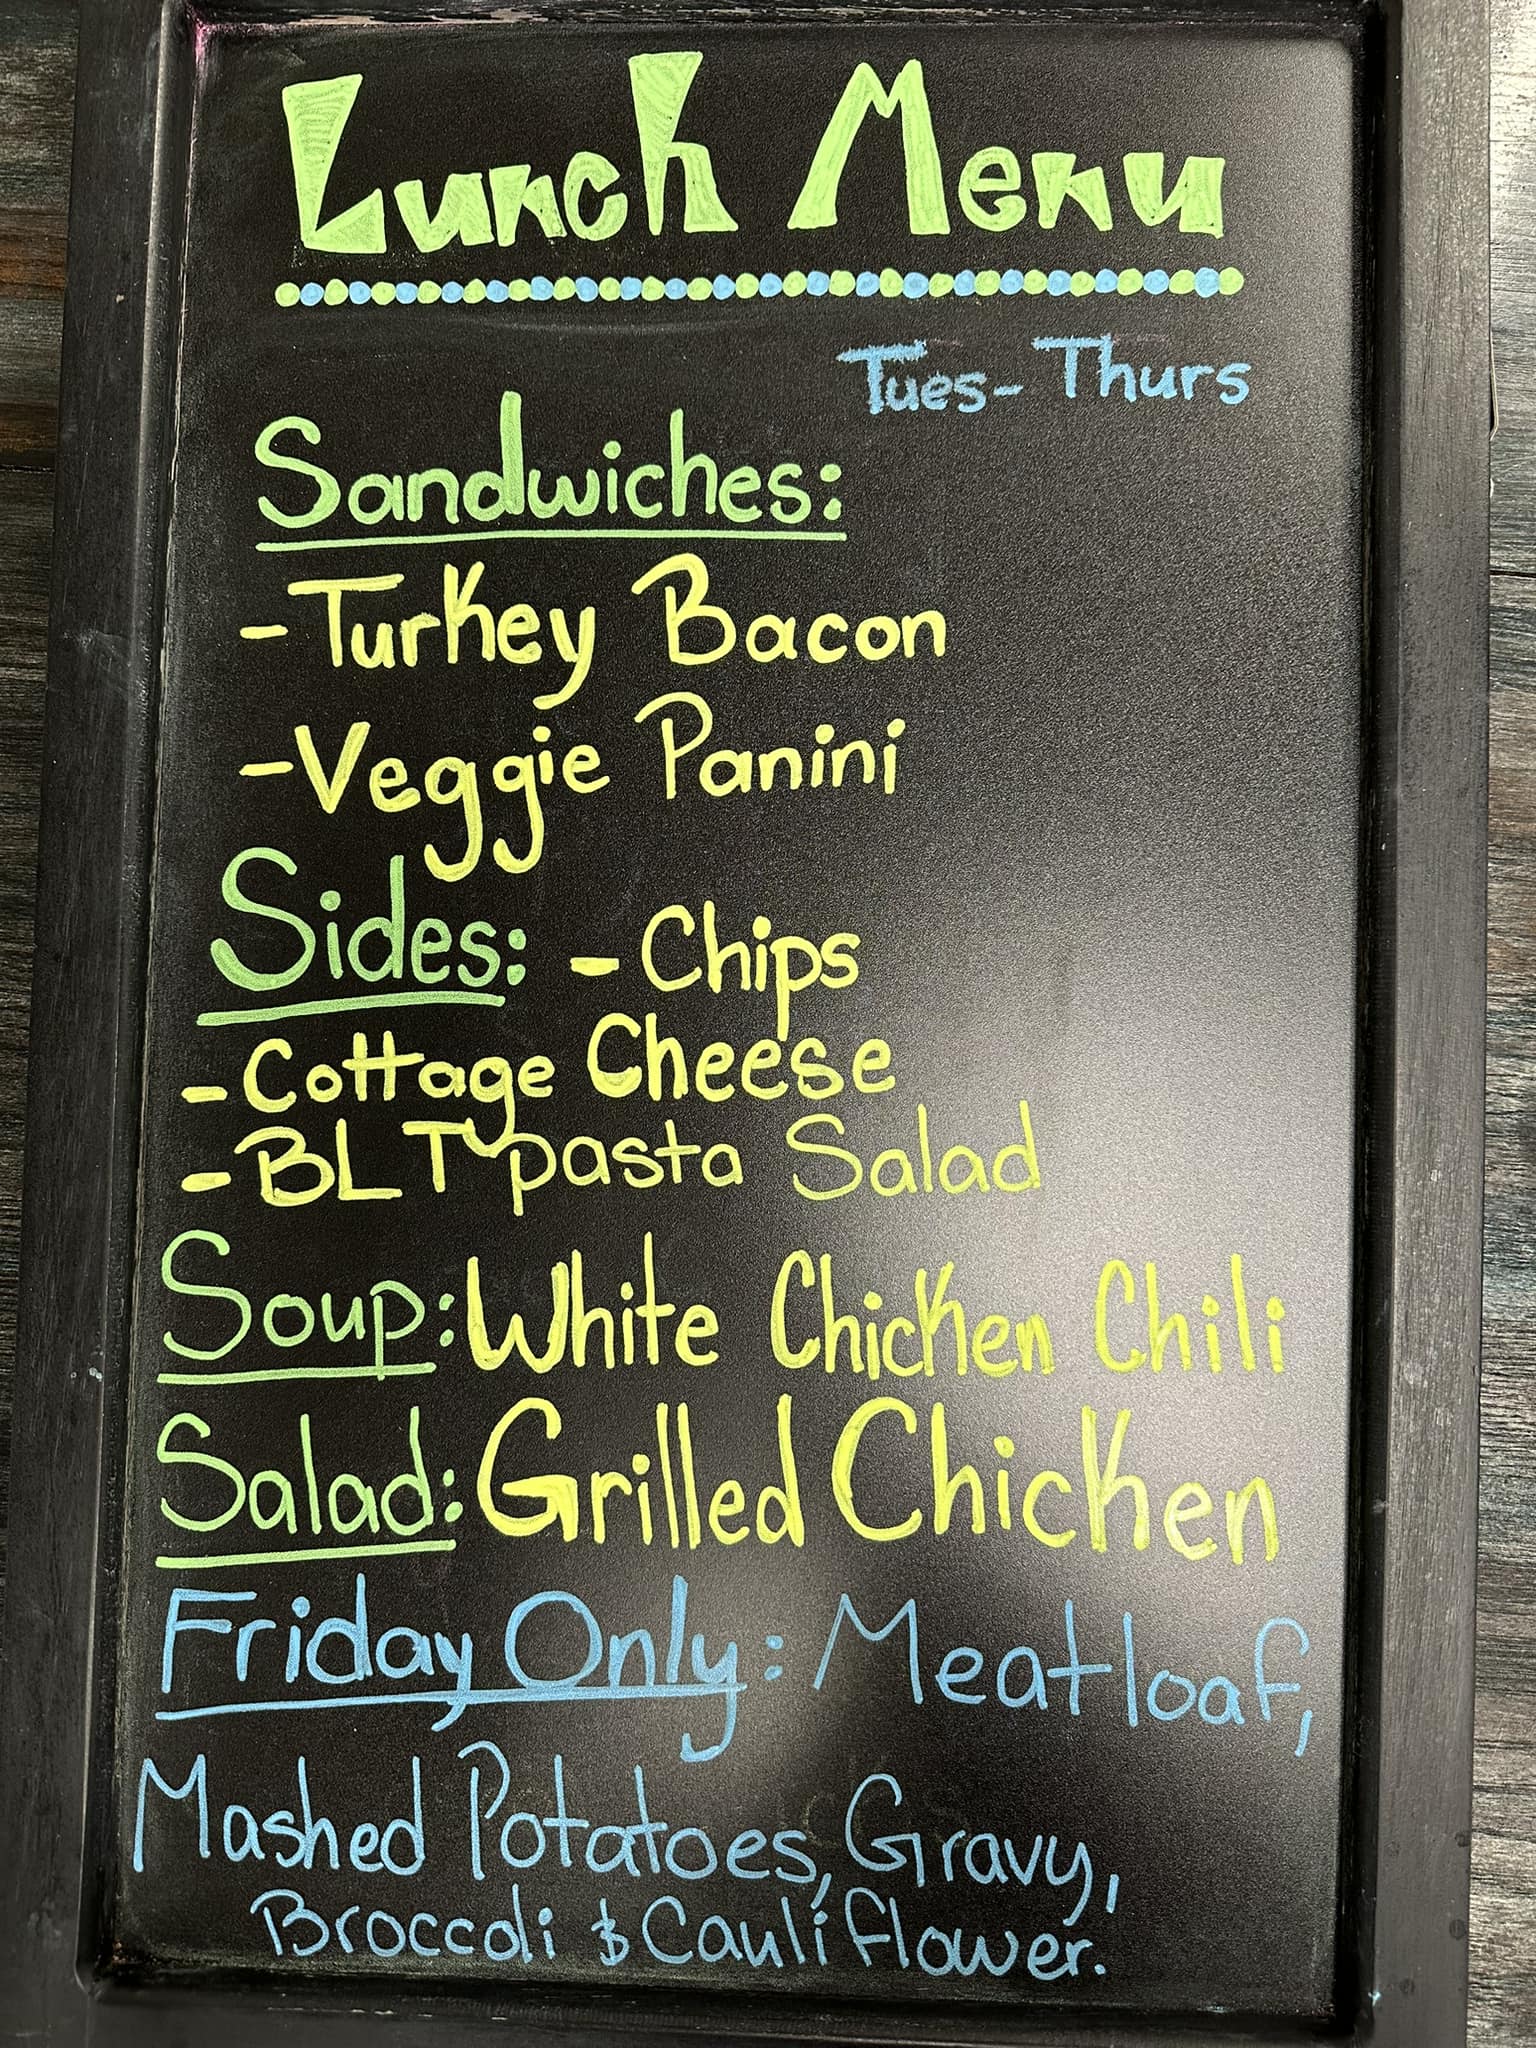 Lunch Menu
Tues-Thurs
Sandwiches:
-Turkey Bacon
-Veggie Panini
Sides: -Chips
-Cottage Cheese
-BLT pasta Salad
Soup: White Chicken Chili
Salad: Grilled Chicken
Friday Only: Meatloaf,
Mashed Potatoes, Gravy,
Broccoli & Cauliflower.